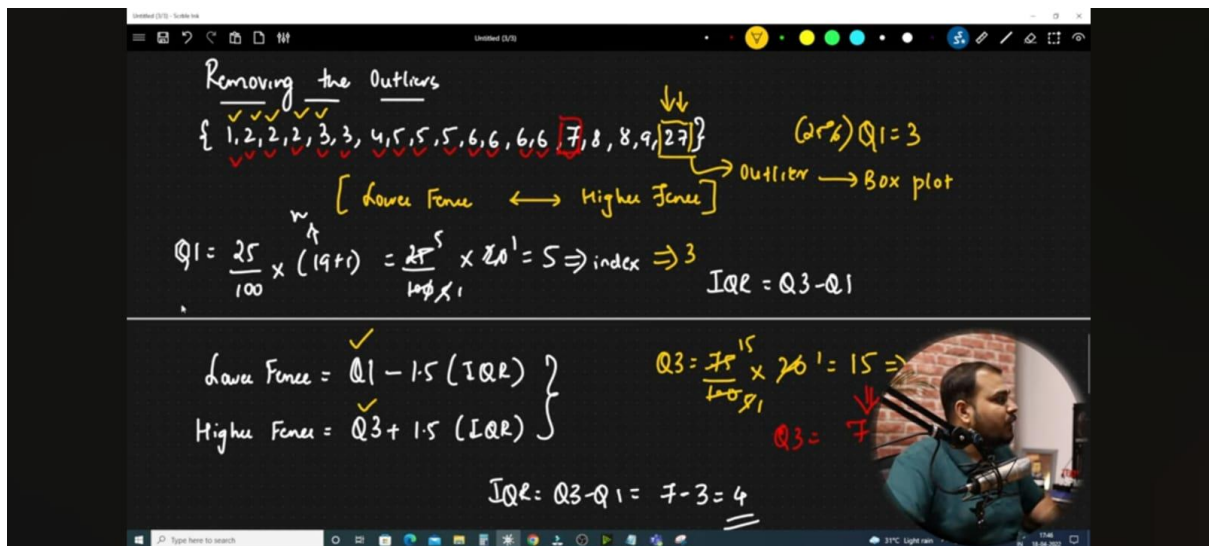 Untitled (3/3) - Scribble Ink
Untitled (3/3)
Removing the Outliers
{ 1,2,2,2,3,3,4,5,5,5,6,6,6,6,7,8,8,9,27}
(25%) Q1=3
Outlier → Box plot
[ Lower Fence ↔ Higher Fence ]
n
Q1 = 25/100 × (19+1) = 25/100 × 20 = 5 ⇒ index ⇒ 3
5 1
5 1
IQR = Q3-Q1
Lower Fence = Q1 - 1.5 (IQR)
Higher Fence = Q3 + 1.5 (IQR)
Q3 = 75/100 × 20 = 15 ⇒
15 1
5 1
Q3 = 7
IQR = Q3-Q1 = 7-3 = 4
Type here to search
31°C Light rain
17:46
IN
18-04-2022